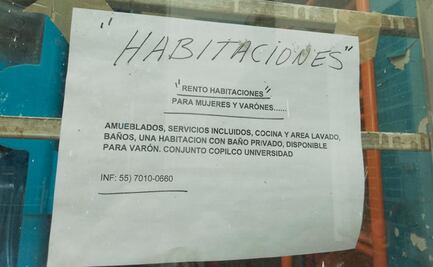 "HABITACIONES"
"RENTO HABITACIONES"
PARA MUJERES Y VARÓNES......
AMUEBLADOS, SERVICIOS INCLUIDOS, COCINA Y AREA LAVADO,
BAÑOS, UNA HABITACION CON BAÑO PRIVADO, DISPONIBLE
PARA VARÓN. CONJUNTO COPILCO UNIVERSIDAD
INF: 55) 7010-0660